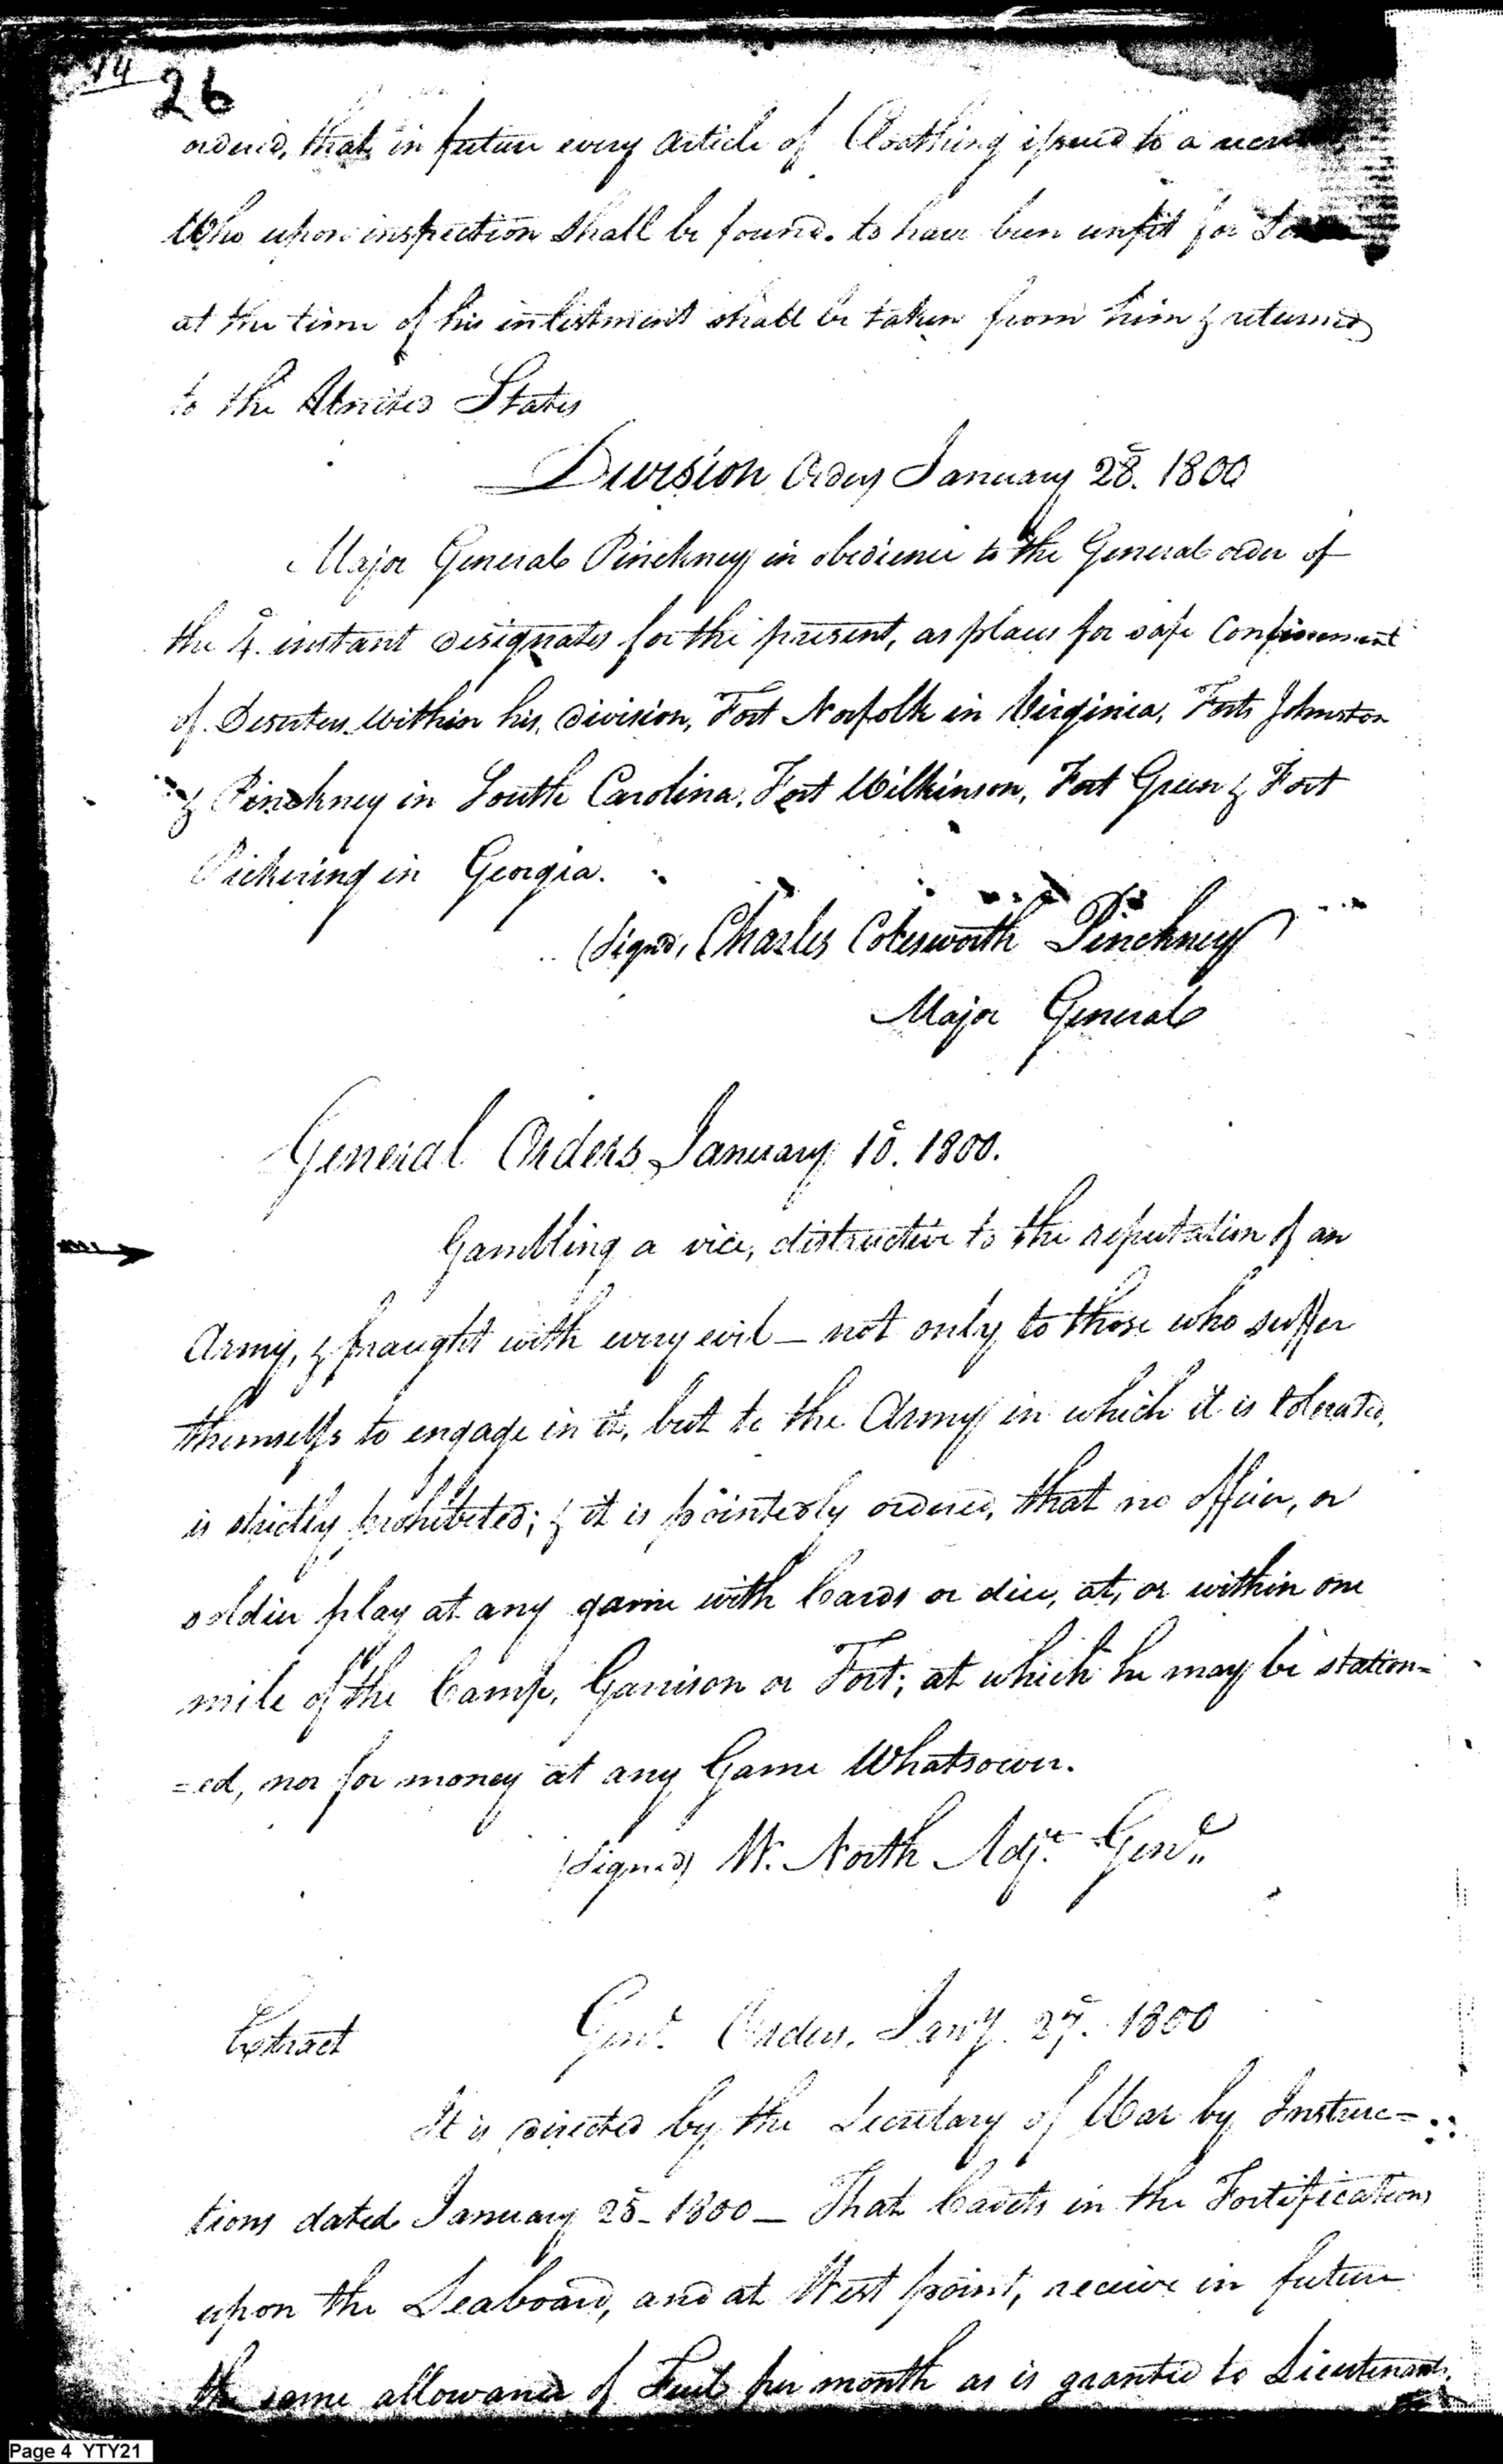 14
26
ordered, that in future every article of Cloathing issued to a
Who upon inspection shall be found to have been unfit for
at the time of his inlistment shall be taken from him & returned
to the United States
Division Orders January 28. 1800
Major General Pinckney in obedience to the General order of
the 4. instant designates for the present, as places for safe Confinement
of Deserters within his division, Fort Norfolk in Virginia, Forts Johnston
& Pinckney in South Carolina, Fort Wilkinson, Fort Green & Fort
Pickering in Georgia.
(Signd, Charles Cotesworth Pinckney
Major General
General Orders January 10. 1800.
Gambling a vice, distructive to the reputation of an
Army, & fraught with every evil – not only to those who suffer
themselfs to engage in it, but to the Army in which it is tolerated,
is strictly prohibited; & it is pointedly ordered, that no officer, or
soldier play at any game with Cards or dice, at, or within one
mile of the Camp, Garrison or Fort; at which he may be station=
=ed, nor for money at any Game Whatsoever.
(Signed) W. North Adjt. Genl.
Extract Genl. Orders. Jany. 27. 1800
It is directed by the Secretary of War by Instruc=
tions dated January 25 – 1800 – That Cadets in the Fortifications
upon the Seaboard, and at West point, receive in future
the same allowance of Fuel per month as is granted to Lieutenants.
Page 4 YTY21